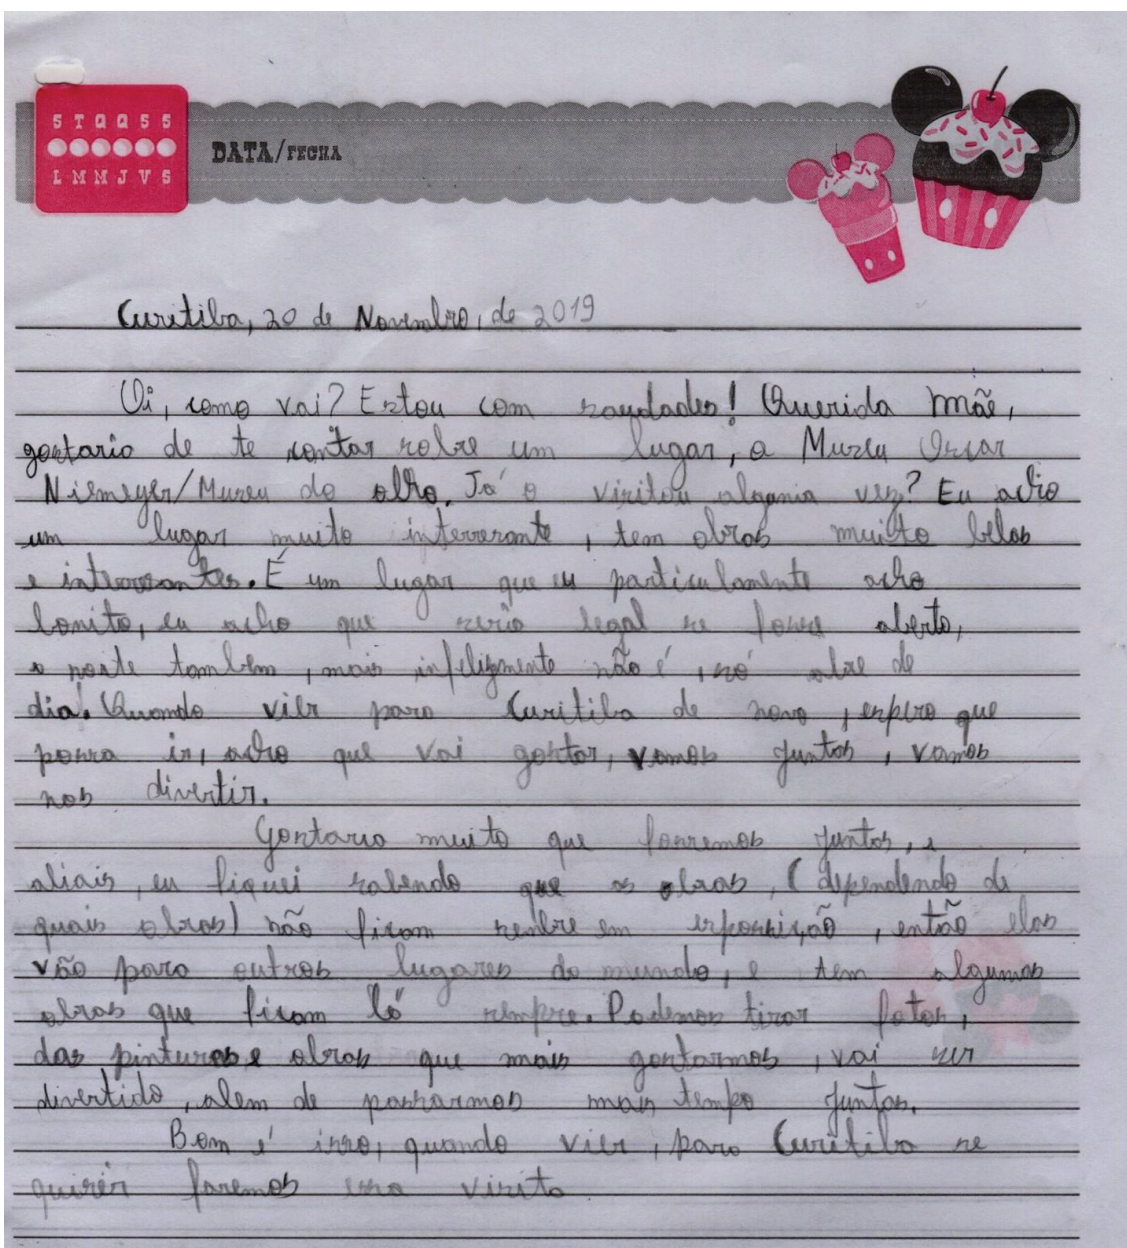 S T Q Q S S
L M M J V S
DATA/FECHA
Curitiba, 20 de Novembro, de 2019
Oi, como vai? Estou com saudades! Querida mãe,
gostaria de te contar sobre um lugar, o Museu Oscar
Niemeyer/Museu do olho. Já o visitou alguma vez? Eu acho
um lugar muito interresante, tem obras muisto belas
e interresantes. É um lugar que eu particulamente acho
bonito, eu acho que seria legal se fosse aberto,
a noite tambem, mais infelizmente não é, só abre de
dia. Quando vier para Curitiba de novo, espero que
possa ir, acho que vai gostar, vamos juntos, vamos
nos divertir.
Gostaria muito que fossemos juntos, e
aliais, eu fiquei sabendo que as obras, (dependendo de
quais obras) não ficam senbre em exposição, então elas
vão para outros lugares do mundo, e tem algumas
obras que ficam lá sempre. Podemos tirar fotos,
das pinturas e obras que mais gostarmos, vai ser
divertido, alem de passarmos mais tempo juntas.
Bom é isso, quando vier, para Curitiba se
quirer faremos essa visita